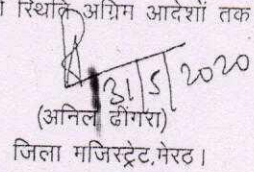 स्थिति अग्रिम आदेशों तक
31/5/2020
(अनिल ढींगरा)
जिला मजिस्ट्रेट,मेरठ।